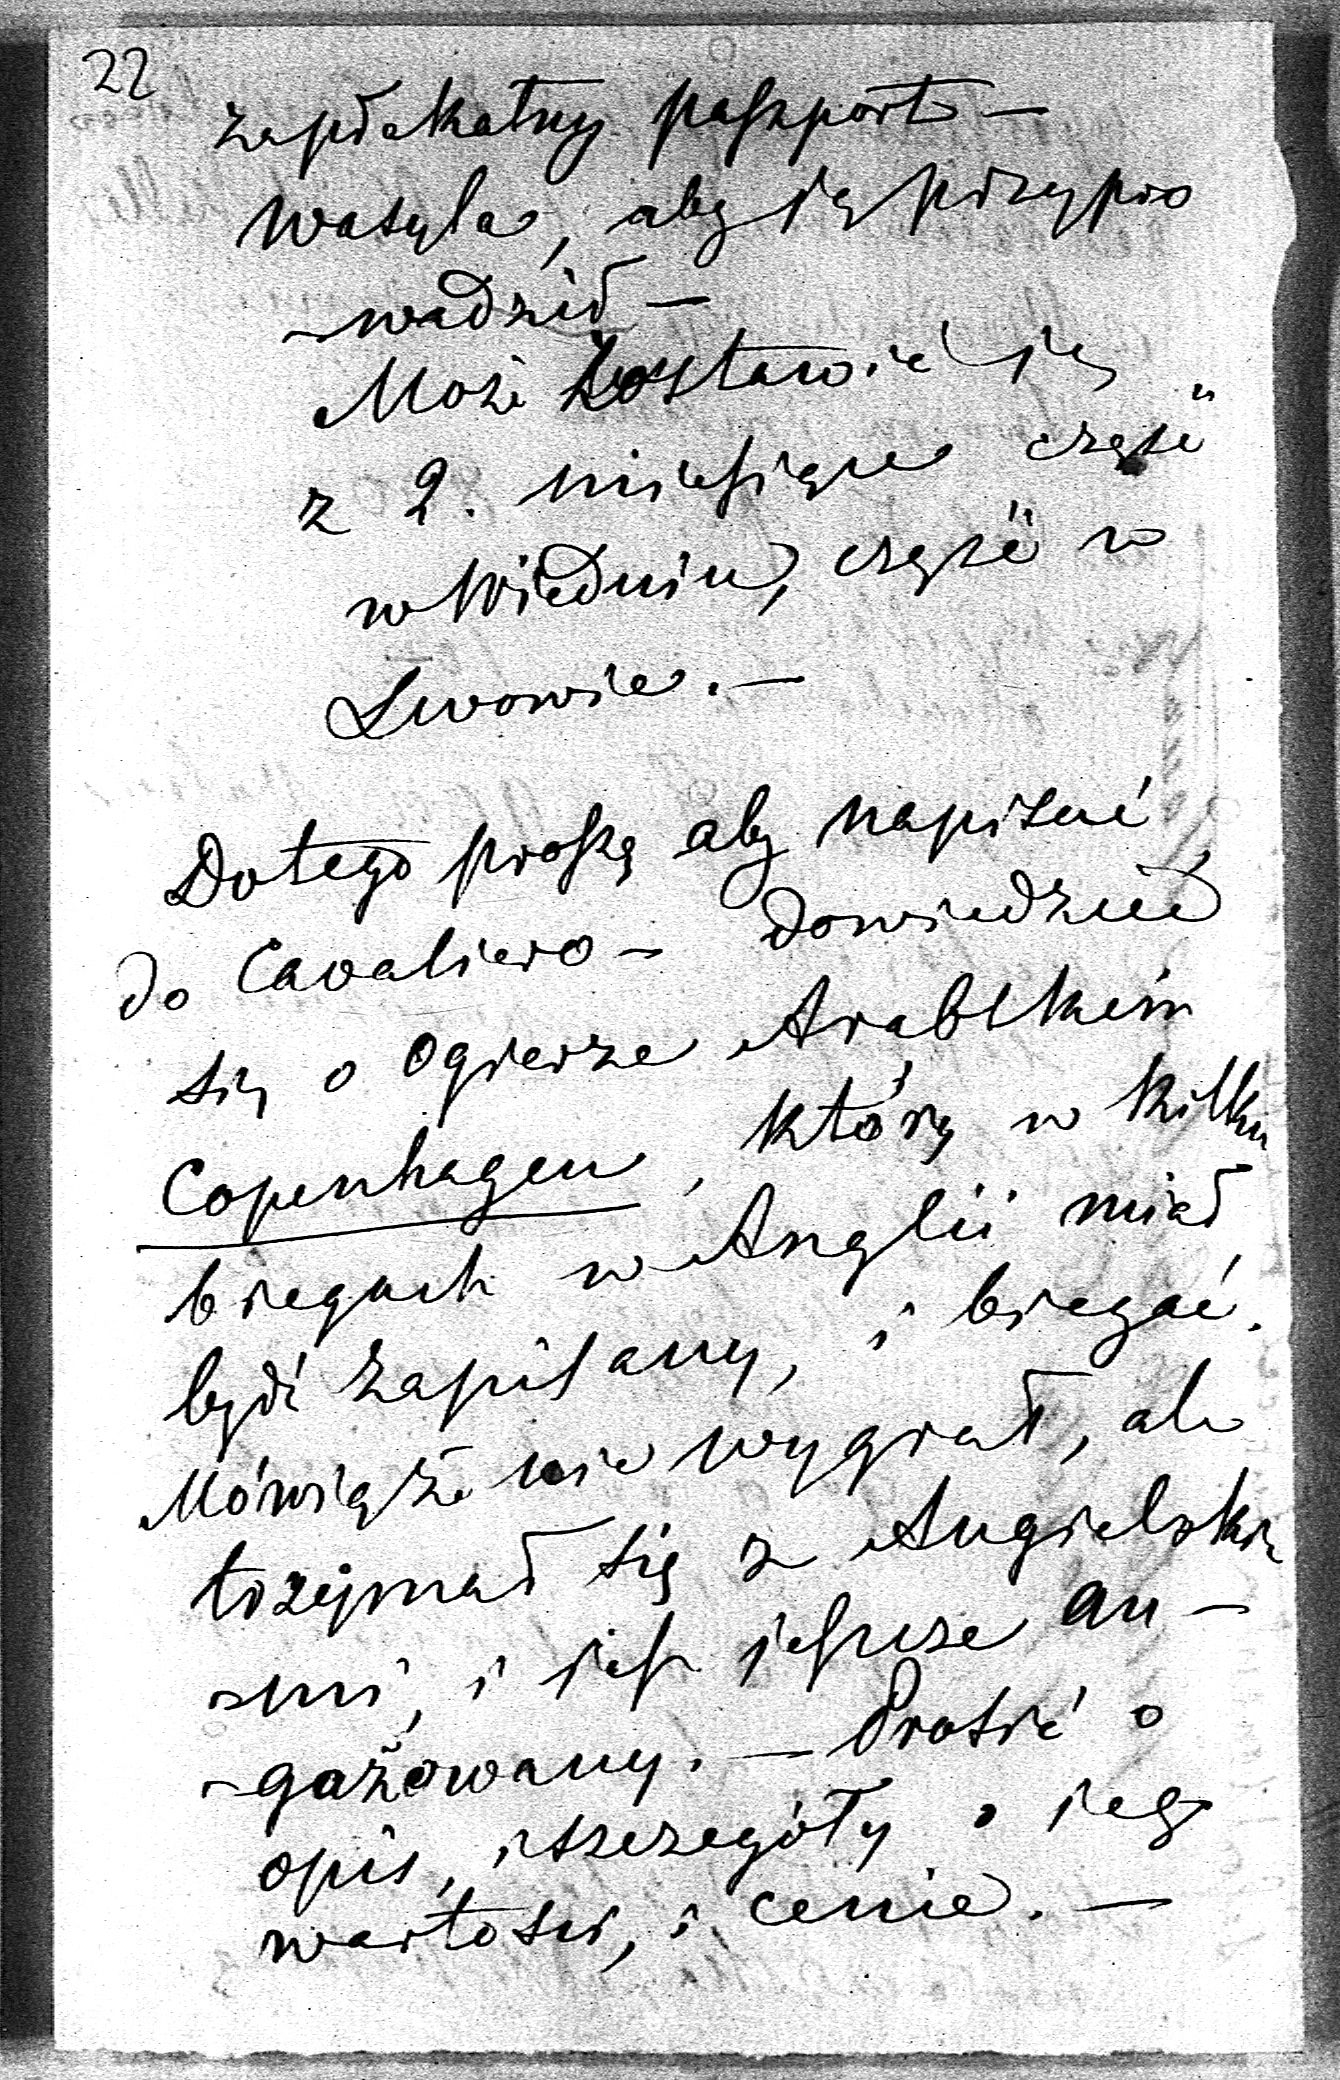 22
paszport —
Wasyla, aby ją przypro
-wadził —
Może zostawić ją
z 2. miesiące część
w Wiedniu, część w
Lwowie. —
Do tego proszę aby napisać
do Cavaliero — dowiedzieć
się o ogierze Arabskim
Copenhagen, który w kilku
biegach w Anglii miał
bydź zapisany, i biegać.
Mówią że nie wygrał, ale
trzymał się z Angielskie
-mi, i jest jeszcze an-
-gażowany. — Prosić o
opis, i szczegóły o jego
wartości, i cenie. —